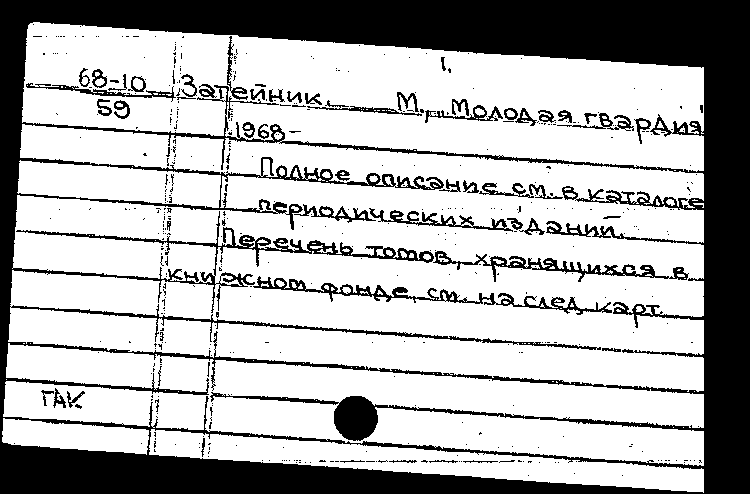 1.
68-10 Затейник. М., „Молодая гвардия"
59
1968-
Полное описание см. в каталоге
периодических изданий.
Перечень томов, хранящихся в
книжном фонде, см. на след карт.
ГАК